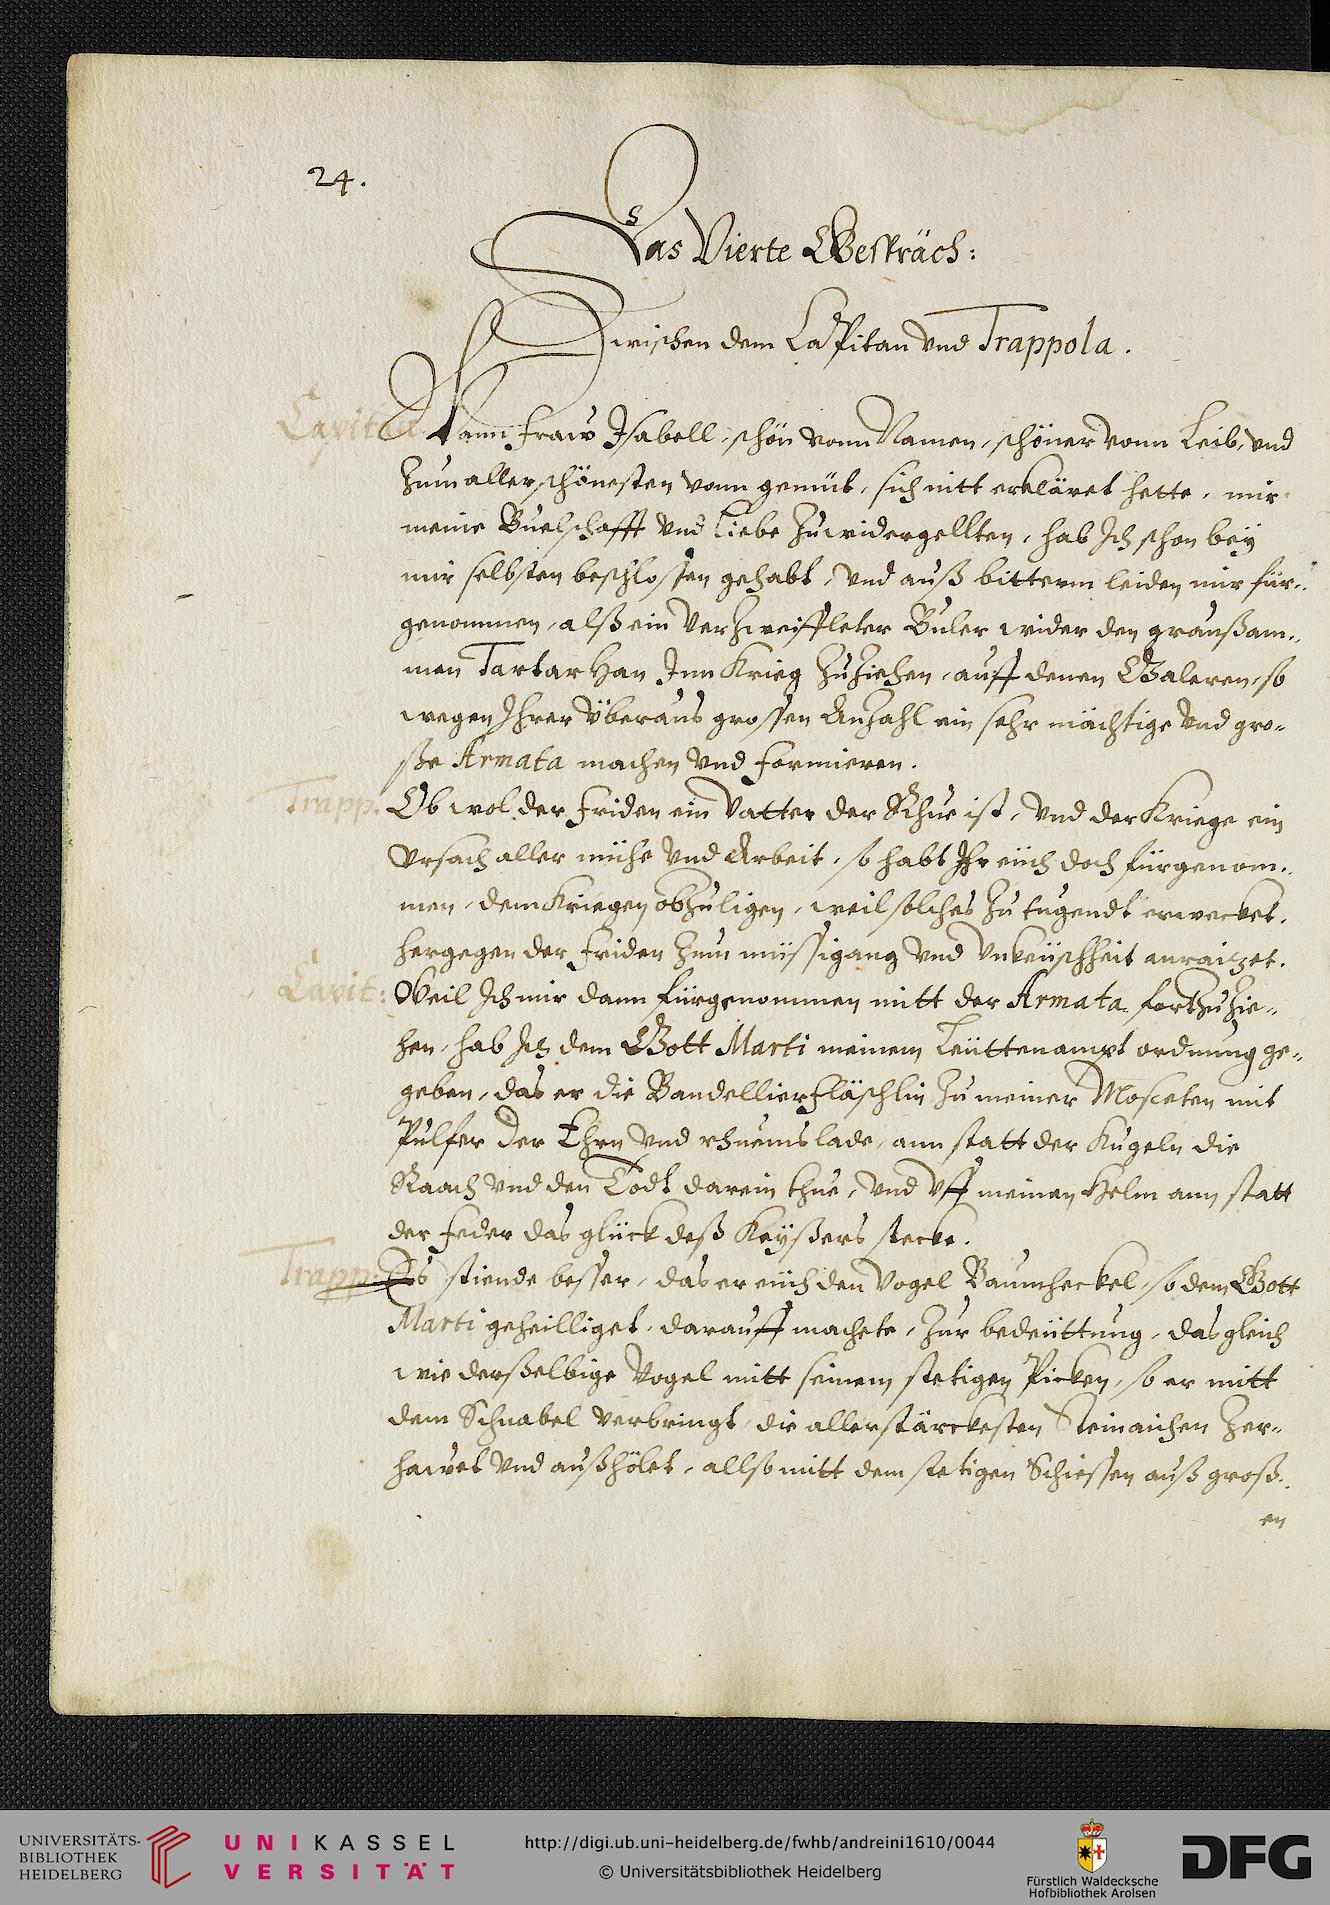 24.
Das Vierte Gespräch:
Zwischen dem Capitan vnd Trappola.
Capitan
Wann Fraw Isabell, schön vonn Namen, schöner vonn Leib, vnd
Zum allerschönesten vonn gemüt, sich nitt erkläret hette, mir
meine Buelschafft vnd Liebe Zuwidergellten, hab Ich schon bey
mir selbsten beschlossen gehabt, vnd auß bitterm leiden mir für-
genommen, alß ein Verzweiffleter Buler wider den graußam-
men Tartar Han Inn Krieg Zuziehen, auff denen Galeren, so
wegen Ihrer Überaus grossen Anzahl ein sehr mächtige vnd gro-
sse Armata machen vnd formieren.
Trapp.
Ob wol der Friden ein Vatter der Rhue ist, vnd der Kriege ein
Vrsach aller mühe vnd Arbeit, so habt Ihr eüch doch fürgenom-
men, dem Kriegen obzuligen, weil solches Zu tugendt erwecket,
hergegen der Friden Zum müssigang vnd Vnkeüschheit anraitzet.
Capit:
Weil Ich mir dann fürgenommen mitt der Armata fortzuzie-
hen, hab Ich dem Gott Marti meinem Leüttenampt ordnung ge-
geben, das er die Bandellierfläschlin Zu meiner Mosceten mit
Pulfer der Ehrn vnd rhuems lade, ann statt der Kugeln die
Raach vnd den Todt darein thue, vnd Vff meinen Helm ann statt
der Feder das glück deß Keyßers stecke.
Trapp.
Es stiende besser, das er eüch den Vogel Baumheckel, so dem Gott
Marti geheilliget, darauff machete, Zur bedeüttung, das gleich
wie derßelbige Vogel mitt seinem stetigen Picken, so er mitt
dem Schnabel verbringt, die allerstärckesten Steinaichen Zer-
hawet vnd außhölet, allso mitt dem stetigen Schiessen auß groß-
en
UNIVERSITÄTS-
BIBLIOTHEK
HEIDELBERG
UNIKASSEL
VERSITÄT
http://digi.ub.uni-heidelberg.de/fwhb/andreini1610/0044
© Universitätsbibliothek Heidelberg
Fürstlich Waldecksche
Hofbibliothek Arolsen
DFG